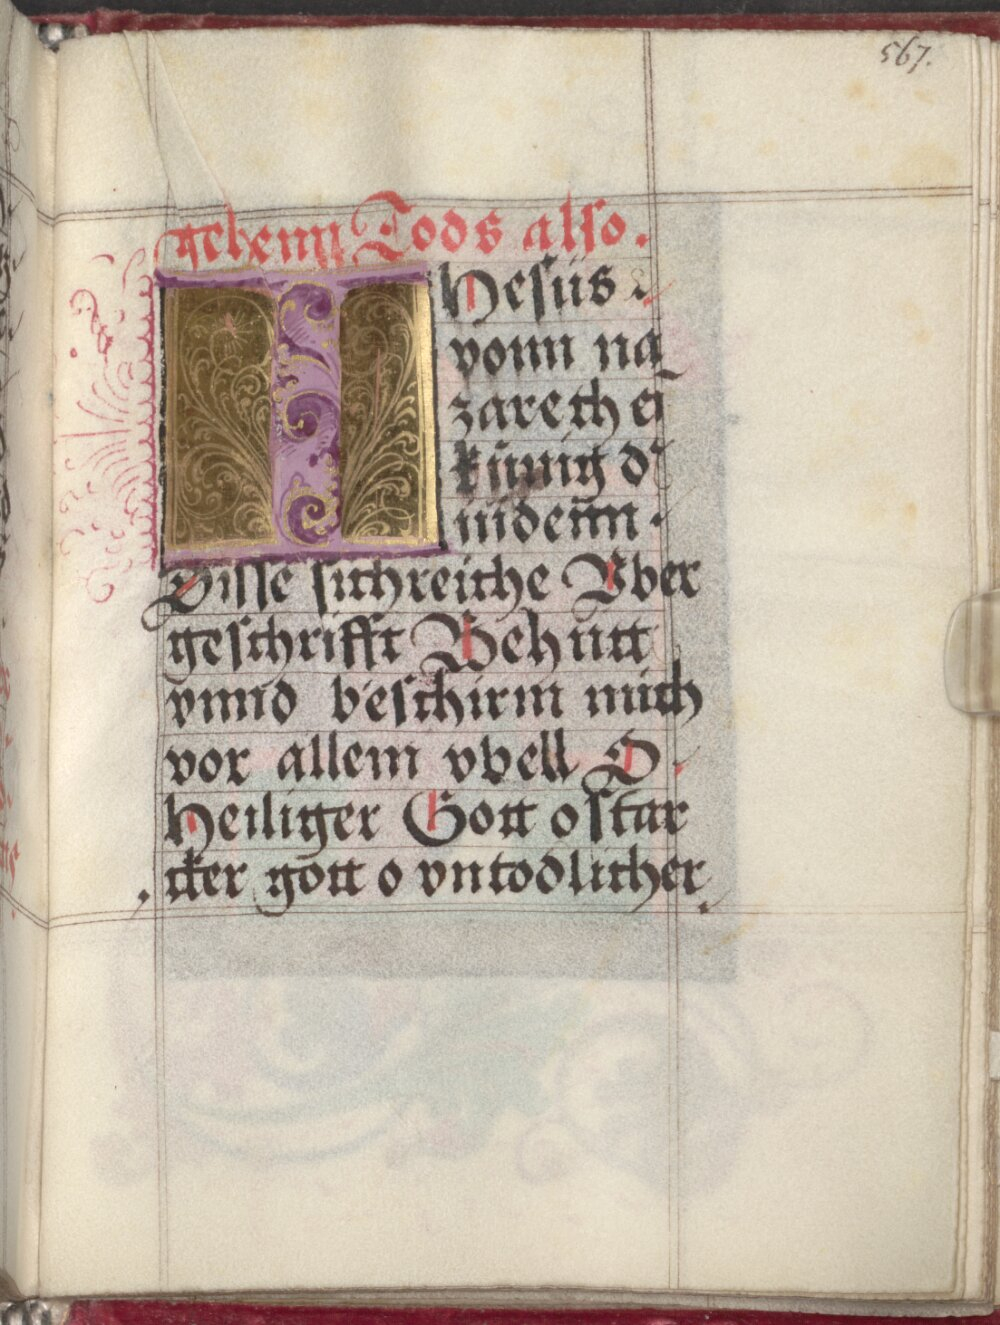 567.
gehenn Tods also.
Ihesus
vonn na
zareth ein
künig d'
iüdenn.
Disse sichreiche Vber
geschrifft Behütt
vnnd beschirm mich
vor allem vbell O
heiliger Gott o star
cker gott o vntodlicher